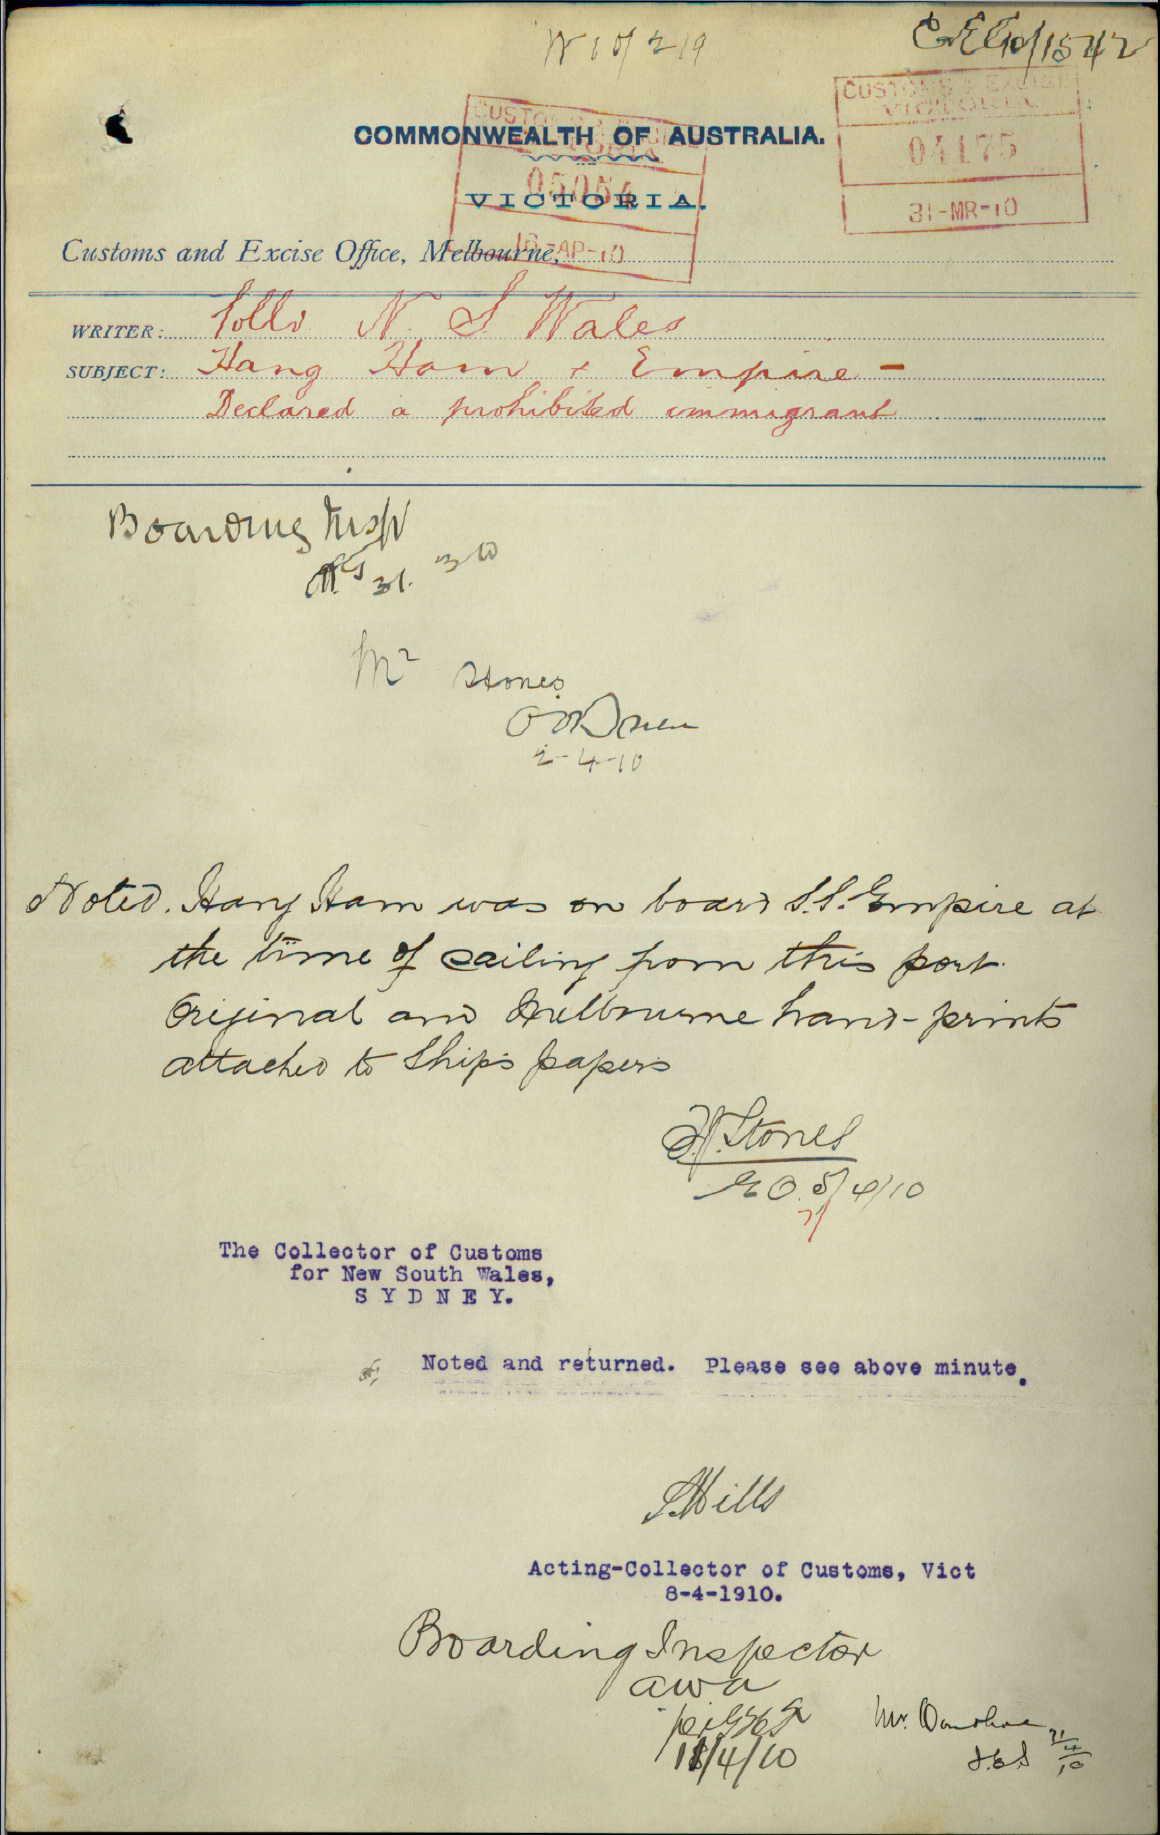 W 10/219
C&E 10/1542
CUSTOMS & EXCISE
VICTORIA
04175
31-MR-10
COMMONWEALTH OF AUSTRALIA.
VICTORIA.
05054
18-AP-10
Customs and Excise Office, Melbourne,
WRITER: Collr N. S Wales
SUBJECT: Hang Ham & Empire -
Declared a prohibited immigrant
Boarding Insp
31. 3 10
Mr Stones
O'Brien
2-4-10
Noted. Hang Ham was on board S.S. Empire at
the time of sailing from this port.
Original and Melbourne hand-prints
attached to Ship's papers
Stones
E O. 5/4/10
The Collector of Customs
for New South Wales,
SYDNEY.
Noted and returned. Please see above minute.
S. Mills
Acting-Collector of Customs, Vict
8-4-1910.
Boarding Inspector
awa
18/4/10
Mr. Donohoe
21/4/10